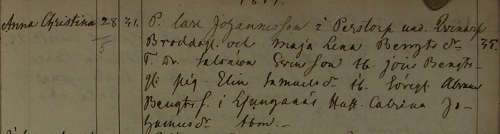 Anna Christina 28/5 31. P. Carl Johannesson i Perstorp und.
Broddag. och Maja Lena Bengtsdr 35.
T. Dr. Salomon Svensson ib. Jöns Bengts-
Pig. Elin Samuelsdr ib. Abram
Bengts S. i Ljunganäs Hust. Catrina Jo-
hannisdr ibm.-